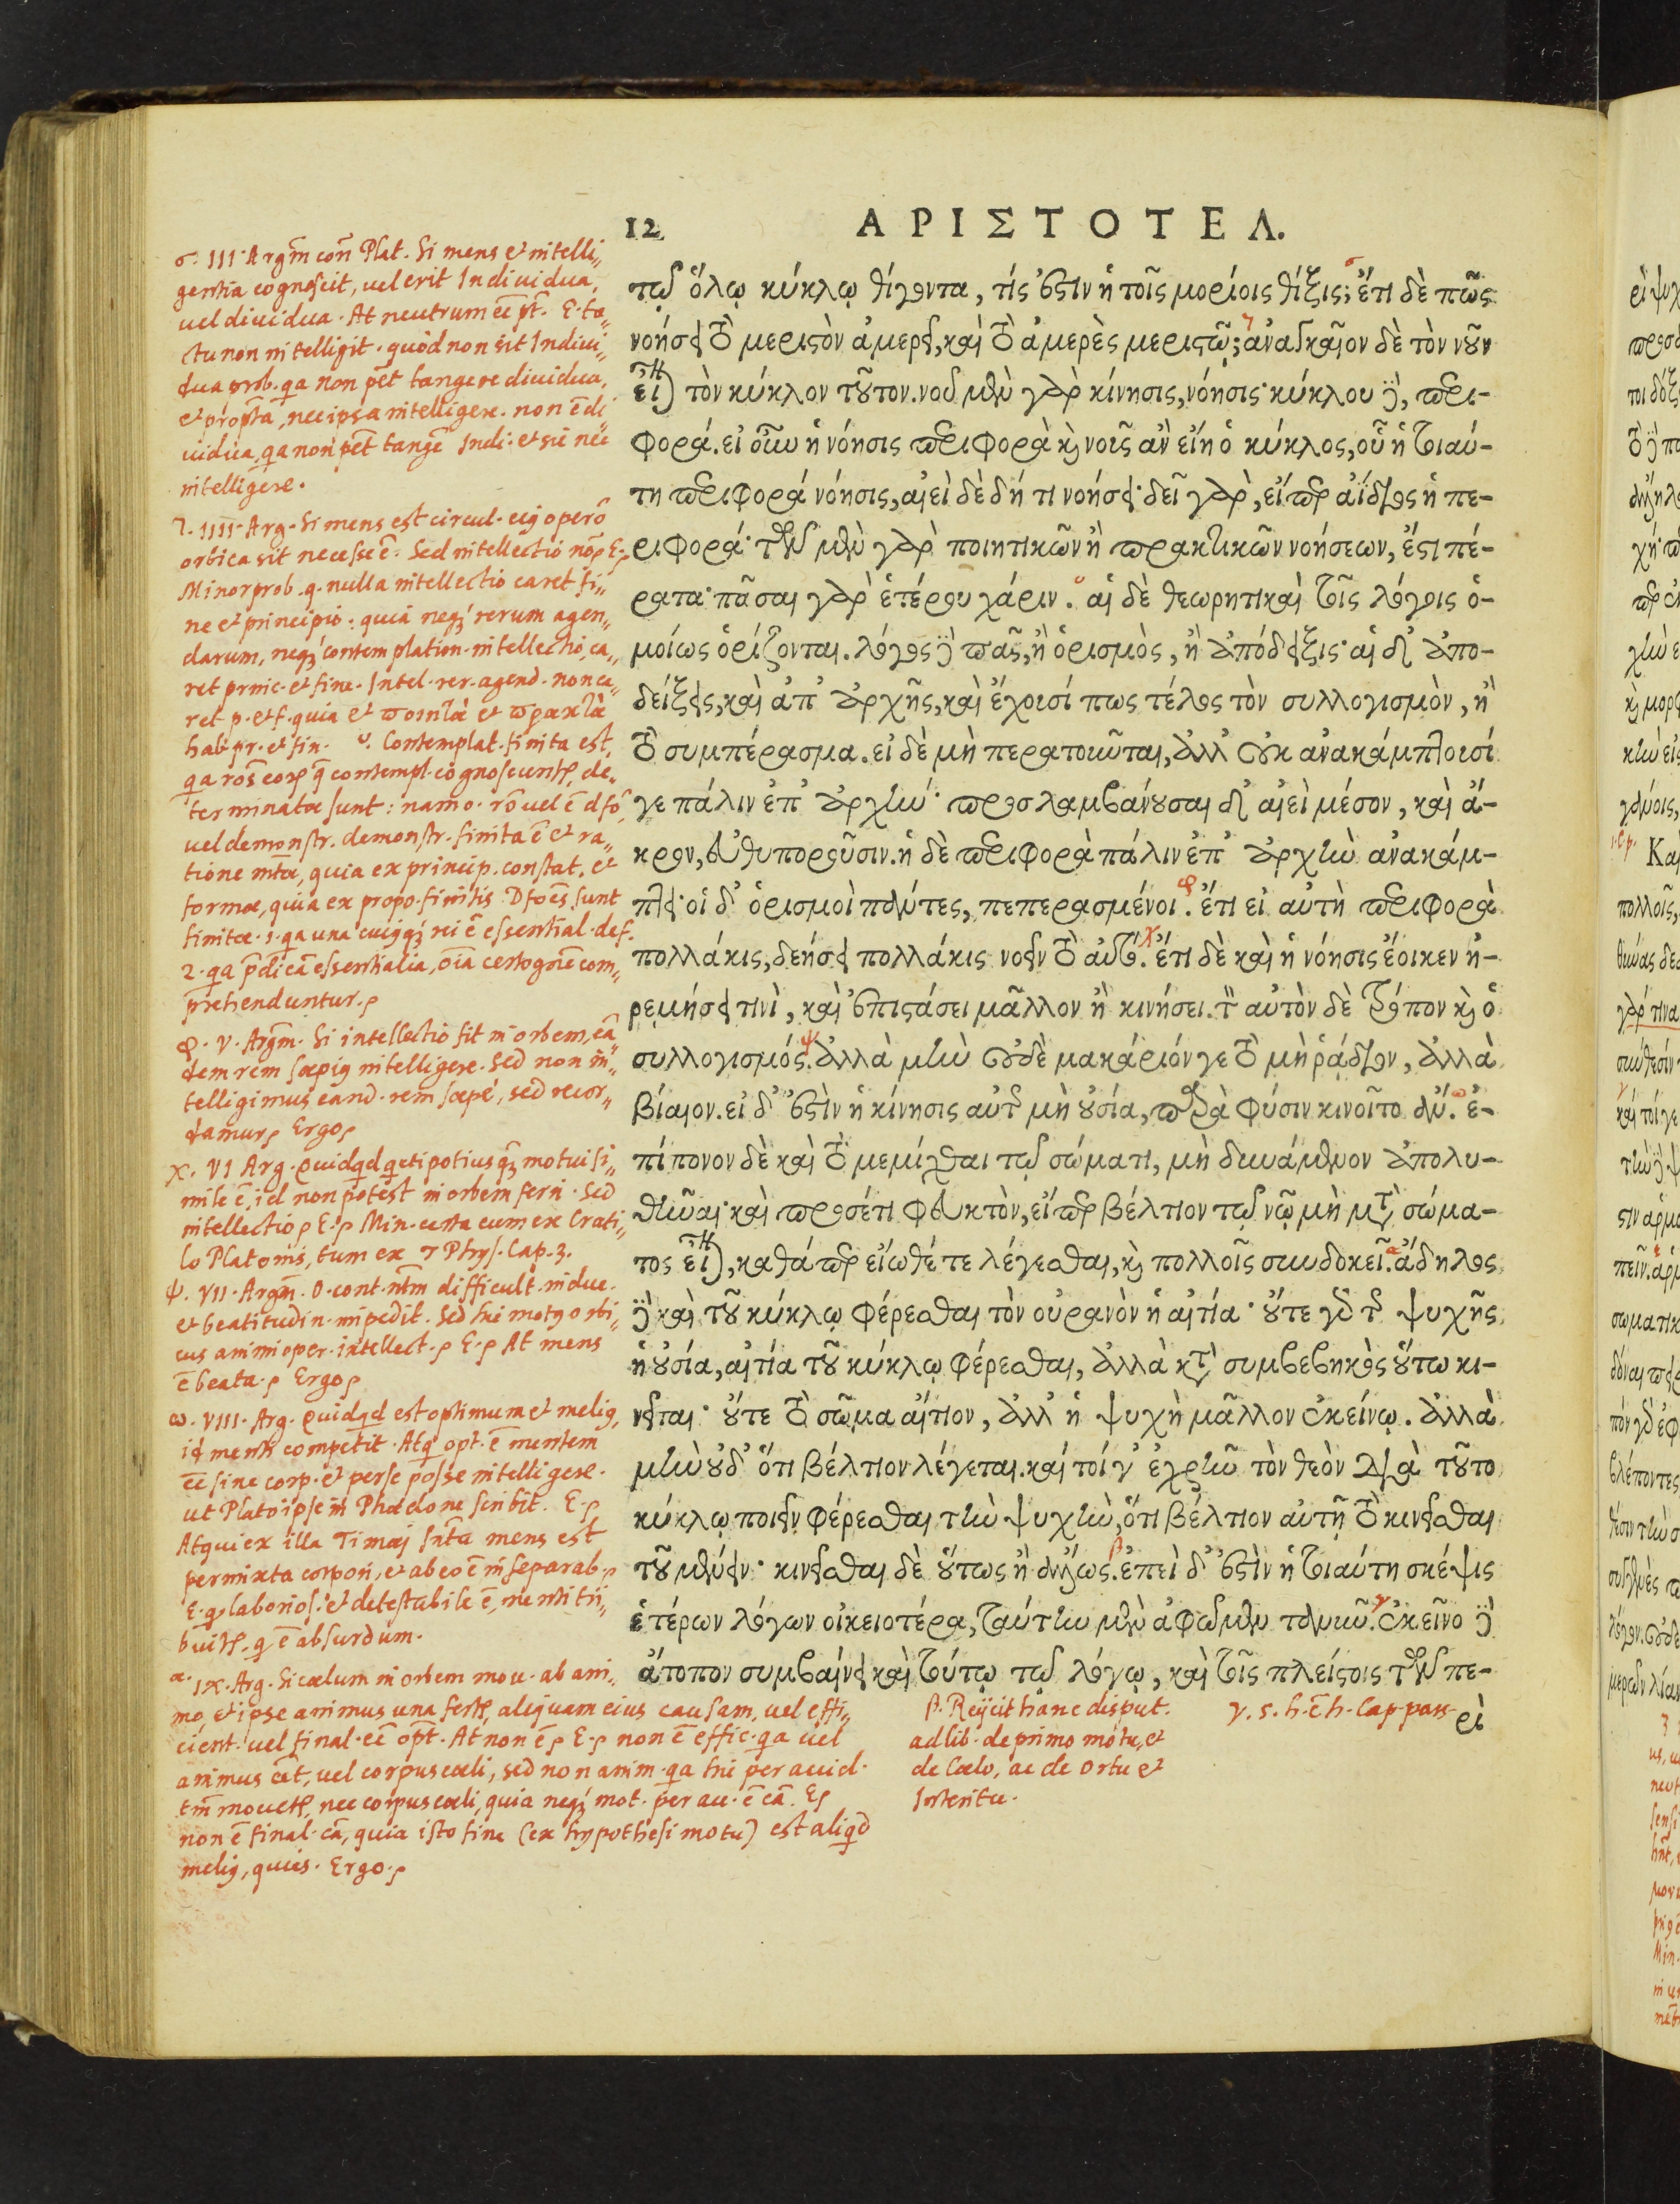 12
ΑΡΙΣΤΟΤΕΛ.
τῷ ὅλῳ κύκλῳ θίγοντα, τίς ἐστιν ἡ τοῖς μορίοις θίξις; ἔτι δὲ πῶς
νοήσει τὸ μεριστὸν ἀμερεῖ, καὶ τὸ ἀμερὲς μεριστῷ; ἀναγκαῖον δὲ τὸν νοῦν
εἶναι τὸν κύκλον τοῦτον. νοῦ μὲν γὰρ κίνησις, νόησις· κύκλου δὲ, περι-
φορά. εἰ οὖν ἡ νόησις περιφορὰ καὶ νοῦς ἂν εἴη ὁ κύκλος, οὗ ἡ τοιαύ-
τη περιφορά νόησις, αἰεὶ δὲ δή τι νοήσει· δεῖ γὰρ, εἴπερ ἀΐδιος ἡ πε-
ριφορά· τῶν μὲν γὰρ ποιητικῶν ἢ πρακτικῶν νοήσεων, ἔστι πέ-
ρατα· πᾶσαι γὰρ ἑτέρου χάριν. αἱ δὲ θεωρητικαὶ τοῖς λόγοις ὁ-
μοίως ὁρίζονται. λόγος δὲ πᾶς, ἢ ὁρισμὸς, ἢ ἀπόδειξις· αἱ δ' ἀπο-
δείξεις, καὶ ἀπ' ἀρχῆς, καὶ ἔχουσί πως τέλος τὸν συλλογισμὸν, ἢ
τὸ συμπέρασμα. εἰ δὲ μὴ περατοῦνται, ἀλλ' οὐκ ἀνακάμπτουσί
γε πάλιν ἐπ' ἀρχήν· προσλαμβάνουσαι δ' αἰεὶ μέσον, καὶ ἄ-
κρον, εὐθυποροῦσιν. ἡ δὲ περιφορὰ πάλιν ἐπ' ἀρχὴν ἀνακάμ-
πτει· οἱ δ' ὁρισμοὶ πάντες, πεπερασμένοι. ἔτι εἰ αὐτὴ περιφορὰ
πολλάκις, δεήσει πολλάκις νοεῖν τὸ αὐτό. ἔτι δὲ καὶ ἡ νόησις ἔοικεν ἠ-
ρεμήσει τινὶ, καὶ ἐπιστάσει μᾶλλον ἢ κινήσει. τὸν αὐτὸν δὲ τρόπον καὶ ὁ
συλλογισμός. ἀλλὰ μὴν οὐδὲ μακάριόν γε τὸ μὴ ῥᾴδιον, ἀλλὰ
βίαιον. εἰ δ' ἐστὶν ἡ κίνησις αὐτῆς μὴ οὐσία, παρὰ φύσιν κινοῖτο ἄν. ἐ-
πίπονον δὲ καὶ τὸ μεμίχθαι τῷ σώματι, μὴ δυνάμενον ἀπολυ-
θῆναι· καὶ προσέτι φευκτὸν, εἴπερ βέλτιον τῷ νῷ μὴ μετὰ σώμα-
τος εἶναι, καθάπερ εἴωθέ τε λέγεσθαι, καὶ πολλοῖς συνδοκεῖ. ἄδηλος
δὲ καὶ τοῦ κύκλῳ φέρεσθαι τὸν οὐρανὸν ἡ αἰτία· οὔτε γὰρ τῆς ψυχῆς
ἡ οὐσία, αἰτία τοῦ κύκλῳ φέρεσθαι, ἀλλὰ κατὰ συμβεβηκὸς οὕτω κι-
νεῖται· οὔτε τὸ σῶμα αἴτιον, ἀλλ' ἡ ψυχὴ μᾶλλον ἐκείνῳ. ἀλλὰ
μὴν οὐδ' ὅτι βέλτιον λέγεται. καί τοί γ' ἐχρῆν τὸν θεὸν διὰ τοῦτο
κύκλῳ ποιεῖν φέρεσθαι τὴν ψυχὴν, ὅτι βέλτιον αὐτῇ τὸ κινεῖσθαι
τοῦ μένειν· κινεῖσθαι δὲ οὕτως ἢ ἄλλως. ἐπεὶ δ' ἐστὶν ἡ τοιαύτη σκέψις
ἑτέρων λόγων οἰκειοτέρα, ταύτην μὲν ἀφῶμεν τὸ νῦν. ἐκεῖνο δὲ
ἄτοπον συμβαίνει καὶ τούτῳ τῷ λόγῳ, καὶ τοῖς πλείστοις τῶν πε-
ρὶ
σ. III. Argm̃ con̄ Plat. Si mens et intelli„
gentia cognoscit, uel erit Indiuidua,
uel diuidua. At neutrum eē pt̄. E. ta„
ctu non intelligit. quòd non sit Indiui„
dua prob. qa non pēt tangere diuidua,
et propt̄a, nec ipsa intelligere. non ē di
uidua, qa non pēt tangē Indi. et sic nec
intelligere.
τ. IIII. Arg. Si mens est circul. eij operō
orbica sit necesse ē. Sed intellectio nō E.
Minor prob. q. nulla intellectio caret fi„
ne et principio: quia neq3 rerum agen„
darum, neq3 contemplation. intellectio, ca„
ret princ. et fine. Intel. rer. agend. non ca„
ret p. et f. quia et ποιητὰ et πρακτὰ
hab pr. et fin. υ. Contemplat. finita est,
terminatæ sunt: nam o. rō uel ē dfō,
uel demonstr. demonstr. finita ē et ra„
tione mt̄æ, quia ex princip. constat, et
formæ, quia ex propo. finitis Dfoēs sunt
finitæ. 1. qa una cuiq3 rei ē essential. def.
2. qa p̄dicā essentialia, oīa certo gn̄e com„
prehenduntur.
φ. V. Argm̃. Si intellectio fit in orbem, eā„
dem rem sæpiq intelligere. Sed non in„
telligimus eand. rem sæpe, sed recor„
damur Ergo
χ. VI Arg. Quidqd qeti potius q̄3 motui si„
mile ē, id non potest in orbem ferri. Sed
intellectio E. Min. certa cum ex Crati„
lo Platonis, tum ex 7 Phys. Cap. 3.
ψ. VII. Argm̃. O. cont. nt̄m difficult. induc.
et beatitudin. impedit. Sed hic motq orbi„
cus animi oper. intellect. E. At mens
ē beata. Ergo
ω. VIII. Arg. Quidqd est optimum et meliq,
id menti competit. Atq opt. ē mentem
eē sine corp. et per se posse intelligere.
ut Plato ipse in Phædone scribit. E.
Atqui ex illa Timæi snt̄ia mens est
permixta corpori, et ab eo ē inseparab.
E. q laborios. et detestabile ē, menti tri„
buitur, q ē absurdum.
α. IX. Arg. Si cœlum in orbem mou. ab ani„
mo et ipse animus una fertur, aliquam eius causam, uel effi„
cient. uel final. eē opt̄. At non ē E. non ē effic. qa uel
animus eēt, uel corpus cœli, sed non anim. qa hic per accid.
tm̄ mouetur, nec corpus cœli, quia neq3 mot. per acc. ē cā. E
non ē final. cā, quia isto fine (ex hypothesi motu) est aliqd
meliq, quies. Ergo.
β. Reijcit hanc disput.
ad lib. de primo motu, et
de Cœlo, ac de Ortu et
Interitu.
γ. 5. h. c̄ h. Cap. pars